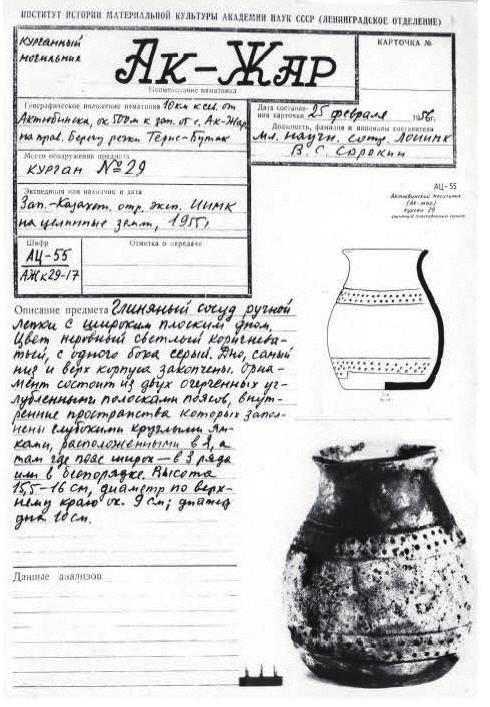 ИНСТИТУТ ИСТОРИИ МАТЕРИАЛЬНОЙ КУЛЬТУРЫ АКАДЕМИИ НАУК СССР (ЛЕНИНГРАДСКОЕ ОТДЕЛЕНИЕ)
КУРГАННЫЙ
могильник
АК-ЖАР
Наименование памятника
КАРТОЧКА №
Географическое положение памятника 10 км к сев. от
Актюбинска, ок 500м к зап. от с. Ак-Жар
на прав. берегу речки Терис-Бутак
Место обнаружения предмета
КУРГАН №29
Экспедиция или находчик и дата
Зап.-Казахст. отр. эксп. ИИМК
на целинные земли, 1955г
Шифр
АЦ-55
АЖк29-17
Отметка о передаче
Дата составле-
ния карточки 25 февраля 1956г.
Должность, фамилия и инициалы составителя
Мл. научн. сотр. ЛОИИМК
В. С. Сорокин
АЦ-55
Актюбинский могильник
(Ак-жар)
курган 29
Описание предмета Глиняный сосуд ручной
лепки с широким плоским дном.
Цвет неровный светлый коричнева-
тый, с одного бока серый. Дно, самый
низ и верх корпуса закопчены. Орна-
мент состоит из двух очерченных уг-
лубленными полосками поясов, внут-
ренние пространства которых запол-
нены глубокими круглыми ям-
ками, расположенными в 2, а
там где пояс широк — в 3 ряда
или в беспорядке. Высота
15,5-16 см, диаметр по верх-
нему краю ок. 9 см; диаметр
дна 10 см.
Данные анализов